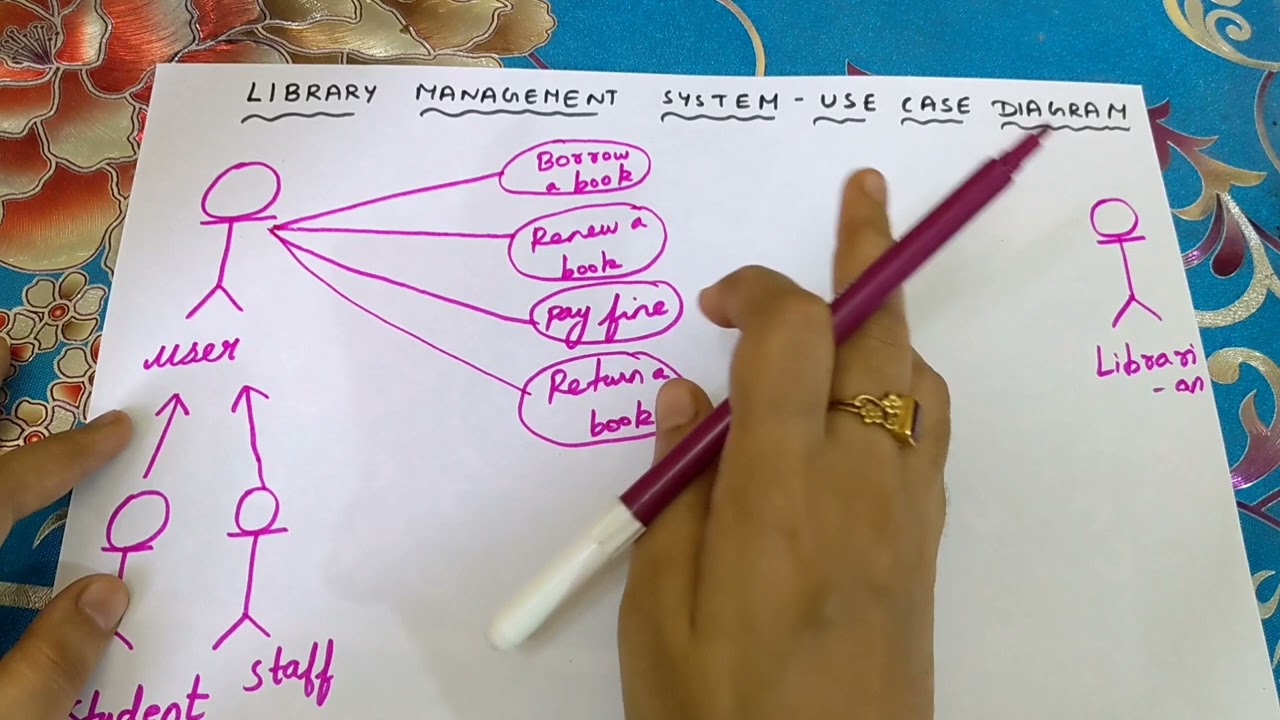 LIBRARY MANAGEMENT SYSTEM - USE CASE DIAGRAM
Borrow
a book
Renew a
book
Pay fine
Return a
book
user
Librari
- an
staff
student